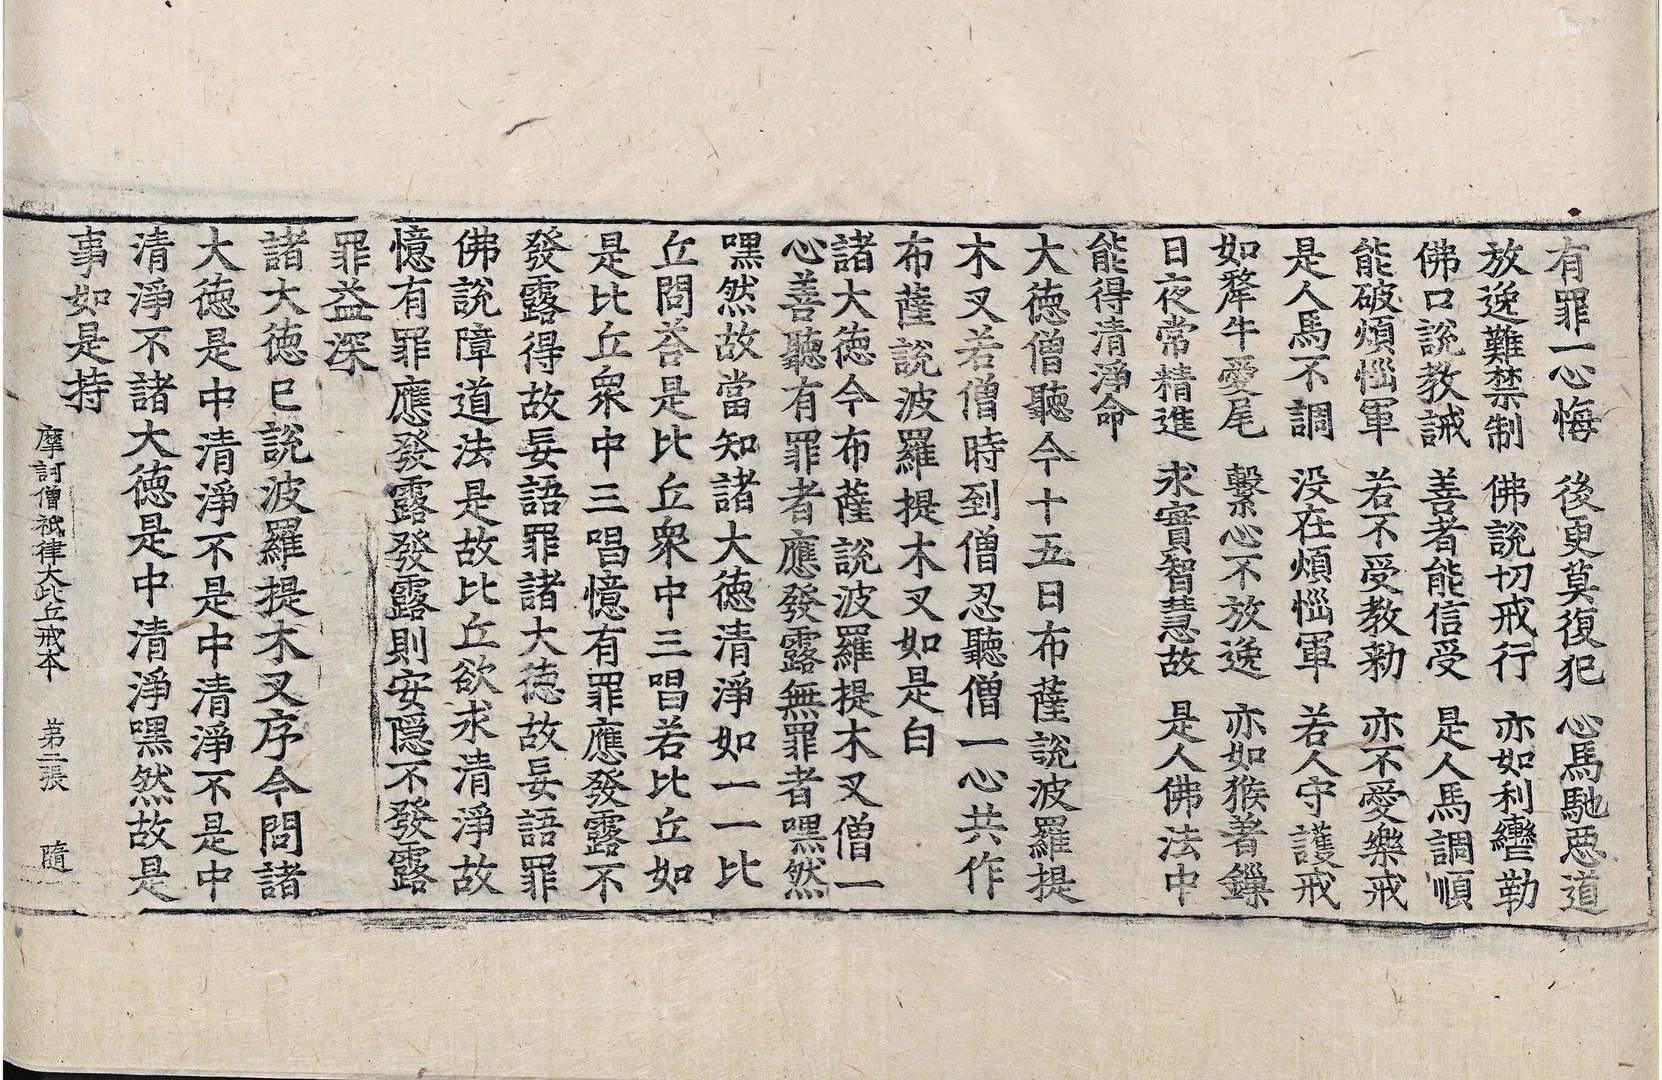 有罪一心悔　後更莫復犯　心馬馳惡道
放逸難禁制　佛說切戒行　亦如利轡勒
佛口說教誡　善者能信受　是人馬調順
能破煩惱軍　若不受教勑　亦不愛樂戒
是人馬不調　没在煩惱軍　若人守護戒
如犛牛愛尾　繫心不放逸　亦如猴著鏁
日夜常精進　求實智慧故　是人佛法中
能得清淨命
大德僧聽今十五日布薩說波羅提
木叉若僧時到僧忍聽僧一心共作
布薩說波羅提木叉如是白
諸大德今布薩說波羅提木叉僧一
心善聽有罪者應發露無罪者嘿然
嘿然故當知諸大德清淨如一一比
丘問荅是比丘衆中三唱若比丘如
是比丘衆中三唱憶有罪應發露不
發露得故妄語罪諸大德故妄語罪
佛說障道法是故比丘欲求清淨故
憶有罪應發露發露則安隱不發露
罪益深
諸大德已說波羅提木叉序今問諸
大德是中清淨不是中清淨不是中
清淨不諸大德是中清淨嘿然故是
事如是持
摩訶僧祇律大比丘戒本　第二張　隨